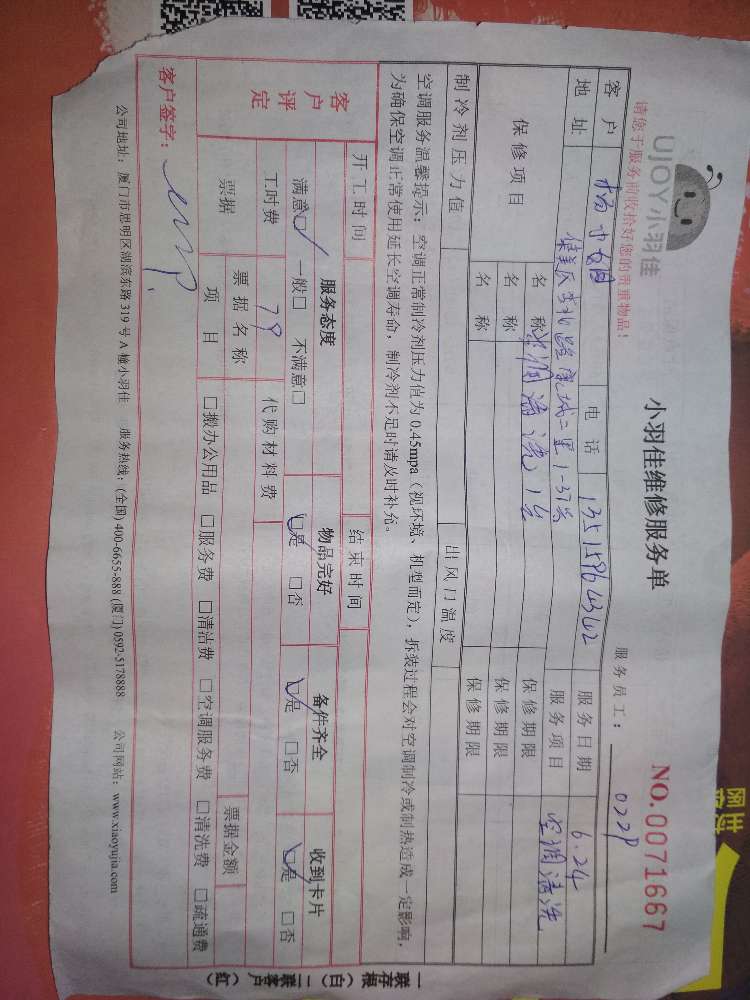 UJOY小羽佳
小羽佳维修服务单
NO.0071667
请您于服务前收拾好您的贵重物品!
服务员工:
客户 电话 服务日期 6.24
地址 服务项目 空调清洗
保修项目 名称 空调清洗1台 保修期限
名称 保修期限
名称 保修期限
制冷剂压力值 出风口温度
空调服务温馨提示:空调正常制冷剂压力值为0.45mpa(视环境、机型而定),拆装过程会对空调制冷或制热造成一定影响,
为确保空调正常使用延长空调寿命,制冷剂不足时请及时补充。
开工时间 结束时间
客户评定 服务态度 物品完好 备件齐全 收到卡片
满意☑ 一般□ 不满意□ ☑是 □否 ☑是 □否 ☑是 □否
工时费 79 代购材料费
票据 票据名称 票据金额
项目 □搬办公用品 □服务费 □清洁费 □空调服务费 □清洗费 □疏通费
客户签字:
公司地址:厦门市思明区湖滨东路319号A幢小羽佳 服务热线:(全国)400-6655-888 (厦门)0592-5178888 公司网站:www.xiaoyujia.com
一联存根(白)二联客户(红)